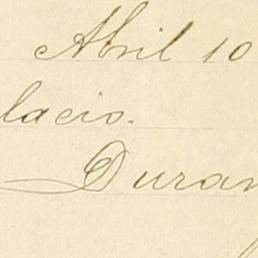 Abril 10
lacio.
Duran